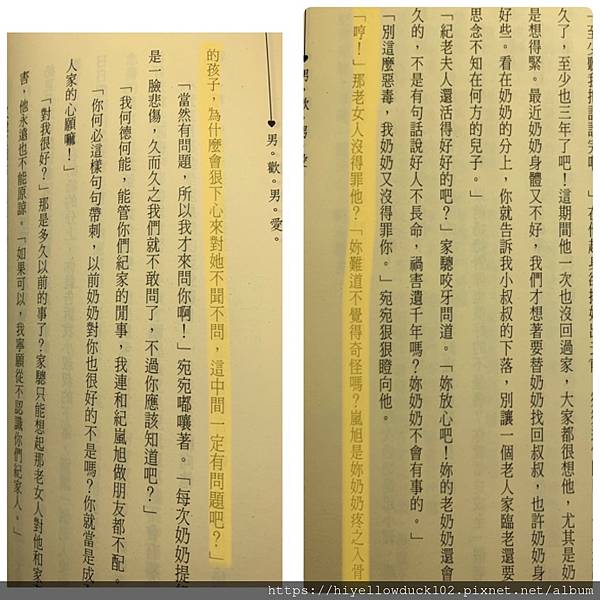 久了，至少也三年了吧！這期間他一次也沒回過家，大家都很想他，尤其是奶
是想得緊。最近奶奶身體又不好，我們才想著要替奶奶找回叔叔，也許奶奶身
好些。看在奶奶的分上，你就告訴我小叔叔的下落，別讓一個老人家臨老還要
思念不知在何方的兒子。」
「紀老夫人還活得好好的吧？」家驄咬牙問道。「妳放心吧！妳的老奶奶還會
久的，不是有句話說好人不長命，禍害遺千年嗎？妳奶奶不會有事的。」
「別這麼惡毒，我奶奶又沒得罪你。」宛宛狠狠瞪向他。
「哼！」那老女人沒得罪他？「妳難道不覺得奇怪嗎？嵐旭是妳奶奶疼之入骨
♥男。歡。男。愛。
的孩子，為什麼會狠下心來對她不聞不問，這中間一定有問題吧？」
「當然有問題，所以我才來問你啊！」宛宛嘟嚷著。「每次奶奶提
是一臉悲傷，久而久之我們就不敢問了，不過你應該知道吧？」
「我何德何能，能管你們紀家的閒事，我連和紀嵐旭做朋友都不配。
「你何必這樣句句帶刺，以前奶奶對你也很好的不是嗎？你就當是成
人家的心願嘛！」
「對我很好？」那是多久以前的事了？家驄只能想起那老女人對他和家
害，他永遠也不能原諒。「如果可以，我寧願從不認識你們紀家人。」
https://hiyellowduck102.pixnet.net/album